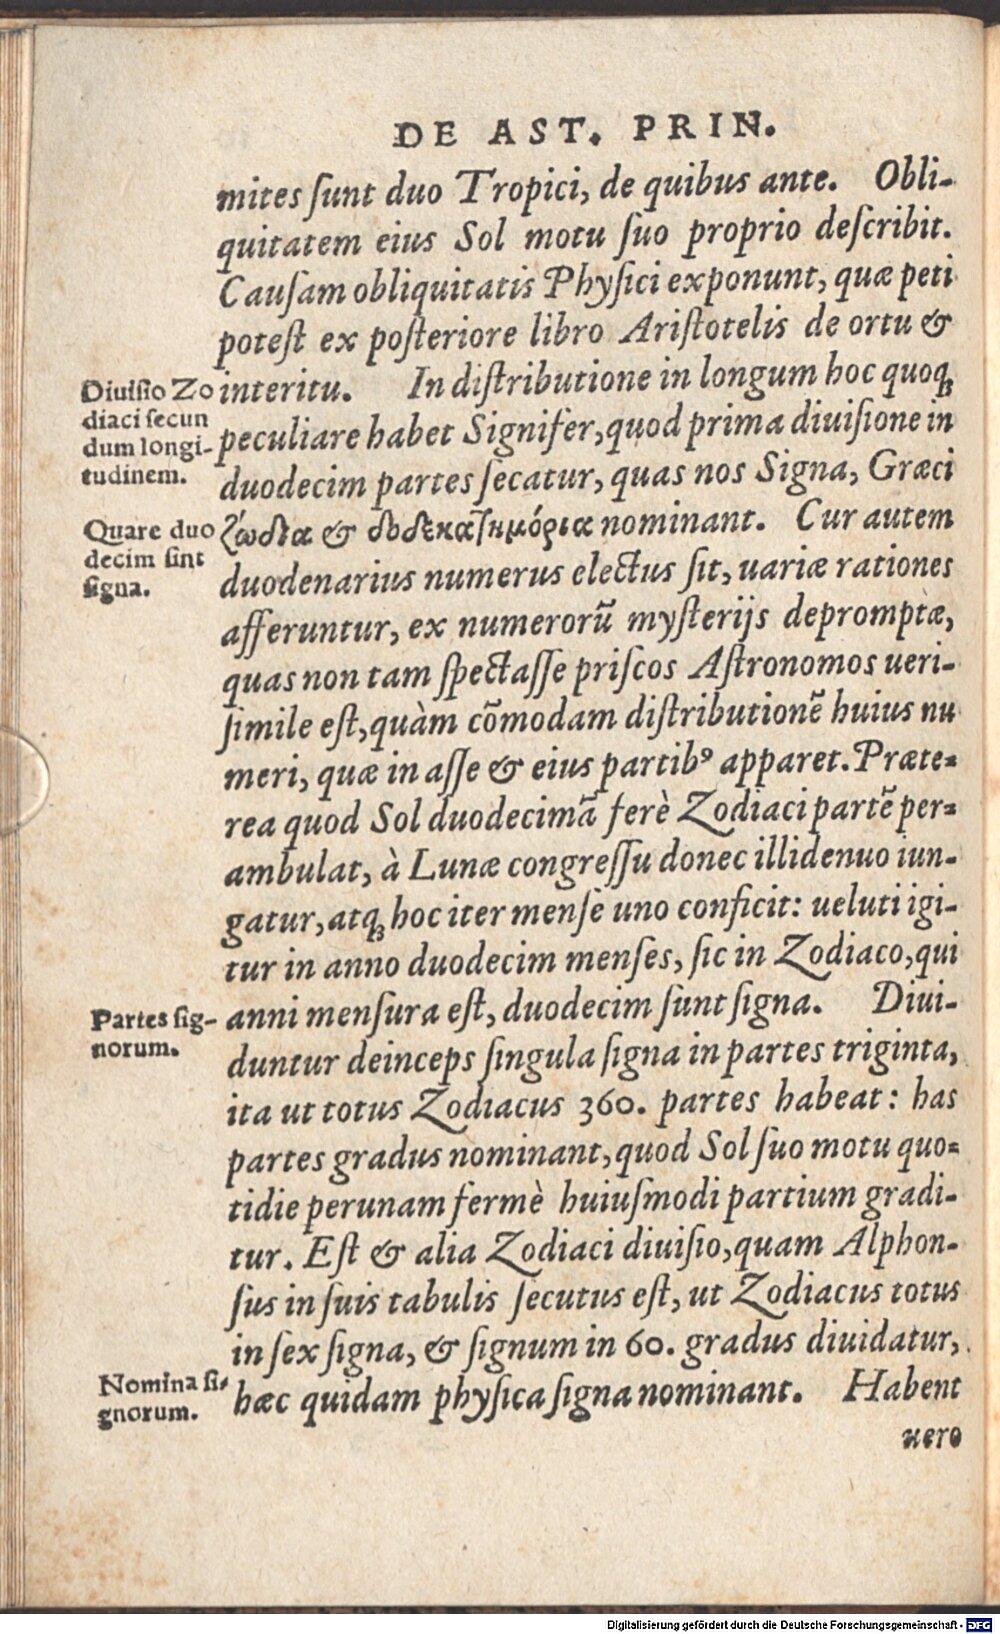 DE AST. PRIN.
mites ſunt duo Tropici, de quibus ante. Obli-
quitatem eius Sol motu ſuo proprio deſcribit.
Cauſam obliquitatis Phyſici exponunt, quæ peti
poteſt ex poſteriore libro Ariſtotelis de ortu &
Diuiſio Zo
diaci ſecun
dum longi-
tudinem.
interitu. In diſtributione in longum hoc quoqꝫ
peculiare habet Signifer, quod prima diuiſione in
duodecim partes ſecatur, quas nos Signa, Græci
Quare duo
decim ſint
ſigna.
ζώδια & δωδεκατημόρια nominant. Cur autem
duodenarius numerus electus ſit, uariæ rationes
afferuntur, ex numerorũ myſterijs depromptæ,
quas non tam ſpectaſſe priſcos Aſtronomos ueri-
ſimile eſt, quàm cõmodam diſtributionẽ huius nu
meri, quæ in aſſe & eius partibꝰ apparet. Præte-
rea quod Sol duodecimã ferè Zodiaci partẽ per-
ambulat, à Lunæ congreſſu donec illi denuo iun-
gatur, atqꝫ hoc iter menſe uno conficit: ueluti igi-
tur in anno duodecim menſes, ſic in Zodiaco, qui
Partes ſig-
norum.
anni menſura eſt, duodecim ſunt ſigna. Diui-
duntur deinceps ſingula ſigna in partes triginta,
ita ut totus Zodiacus 360. partes habeat: has
partes gradus nominant, quod Sol ſuo motu quo-
tidie per unam fermè huiuſmodi partium gradi-
tur. Eſt & alia Zodiaci diuiſio, quam Alphon-
ſus in ſuis tabulis ſecutus eſt, ut Zodiacus totus
in ſex ſigna, & ſignum in 60. gradus diuidatur,
Nomina ſi-
gnorum.
hæc quidam phyſica ſigna nominant. Habent
uero
Digitalisierung gefördert durch die Deutsche Forschungsgemeinschaft - DFG